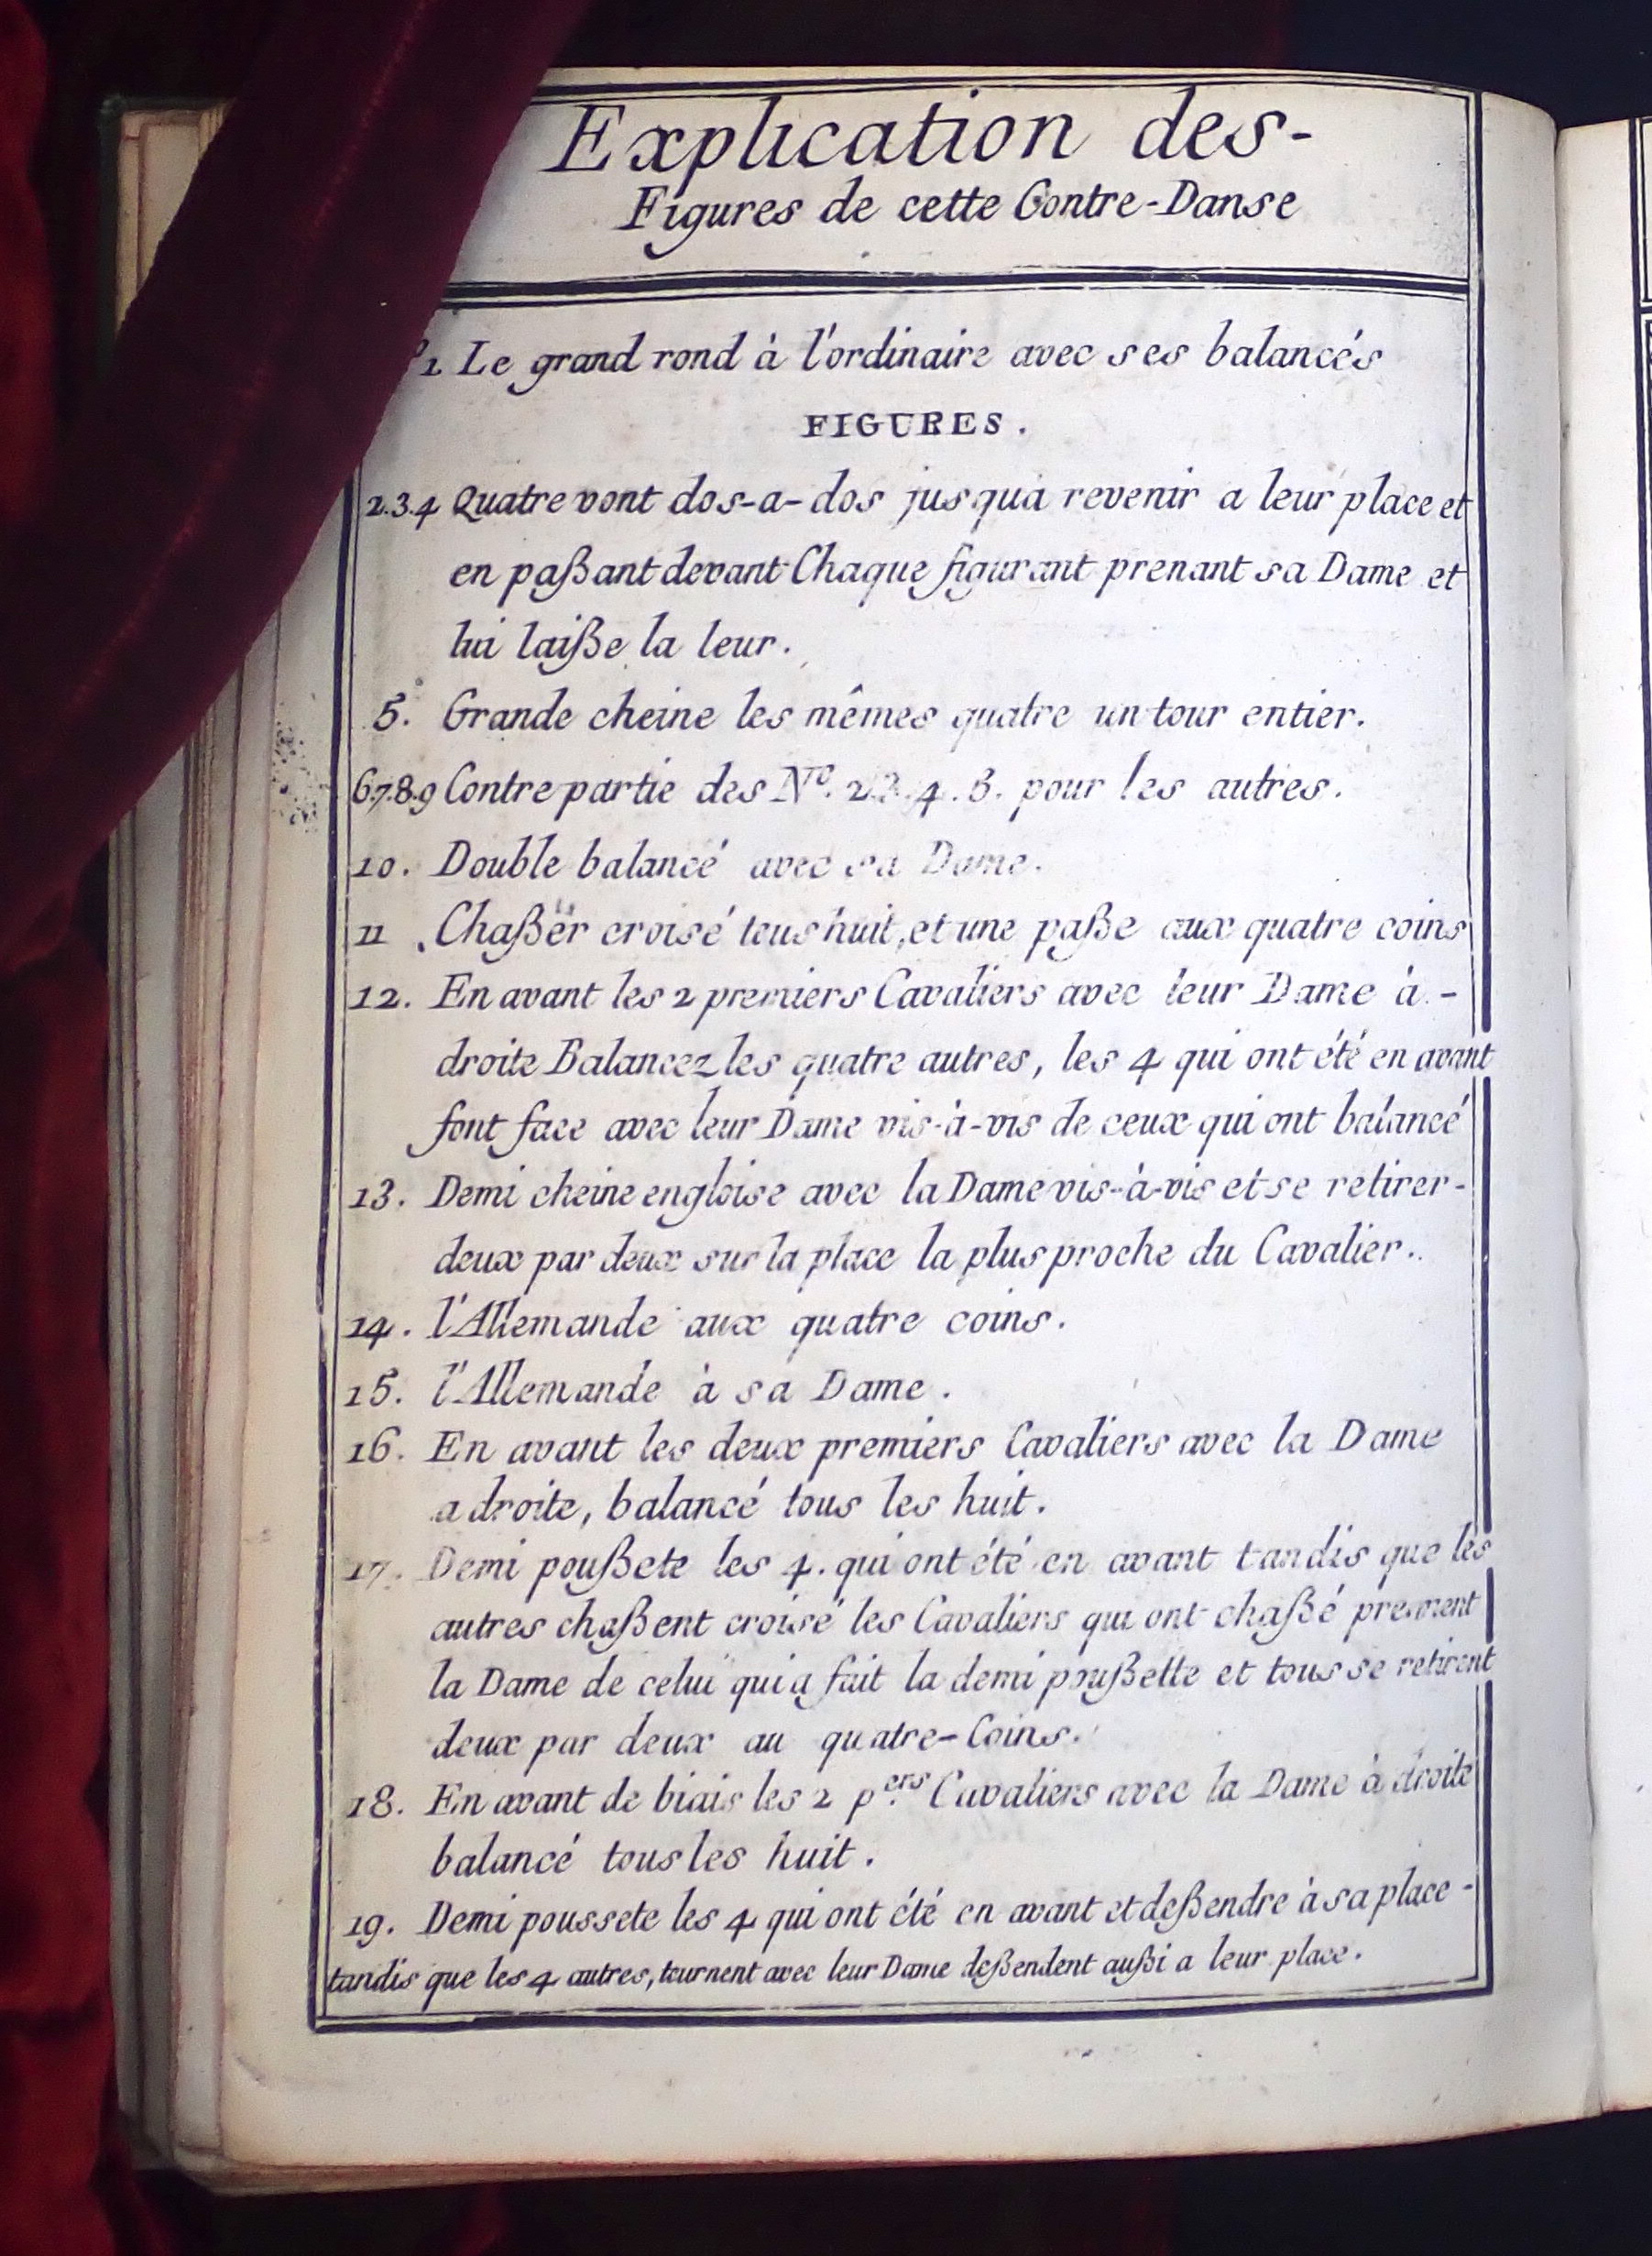 Explication des-
Figures de cette Contre-Danse
1 Le grand rond à l'ordinaire avec ses balancés
FIGURES.
2.3.4 Quatre vont dos-a-dos jusqua revenir a leur place et
en paßant devant Chaque figurant prenant sa Dame et
lui laiße la leur.
5. Grande cheine les mêmes quatre un tour entier.
6.7.8.9 Contre partie des Nro. 2.3.4.5. pour les autres.
10. Double balancé avec sa Dame.
11. Chaßër croisé tous huit, et une paße aux quatre coins
12. En avant les 2 premiers Cavaliers avec leur Dame à -
droite Balancez les quatre autres, les 4 qui ont été en avant
font face avec leur Dame vis-à-vis de ceux qui ont balancé
13. Demi cheine engloise avec la Dame vis-à-vis et se retirer-
deux par deux sur la place la plus proche du Cavalier..
14. l'Allemande aux quatre coins.
15. l'Allemande à sa Dame.
16. En avant les deux premiers Cavaliers avec la Dame
a droite, balancé tous les huit.
17. Demi poußete les 4. qui ont été en avant tandis que les
autres chaßent croisé les Cavaliers qui ont chaßé prennent
la Dame de celui qui a fait la demi poußette et tous se retirent
deux par deux au quatre-Coins.
18. En avant de biais les 2 p.ers Cavaliers avec la Dame à droite
balancé tous les huit.
19. Demi poussete les 4 qui ont été en avant et deßendre à sa place -
tandis que les 4 autres, tournent avec leur Dame deßendent außi a leur place.